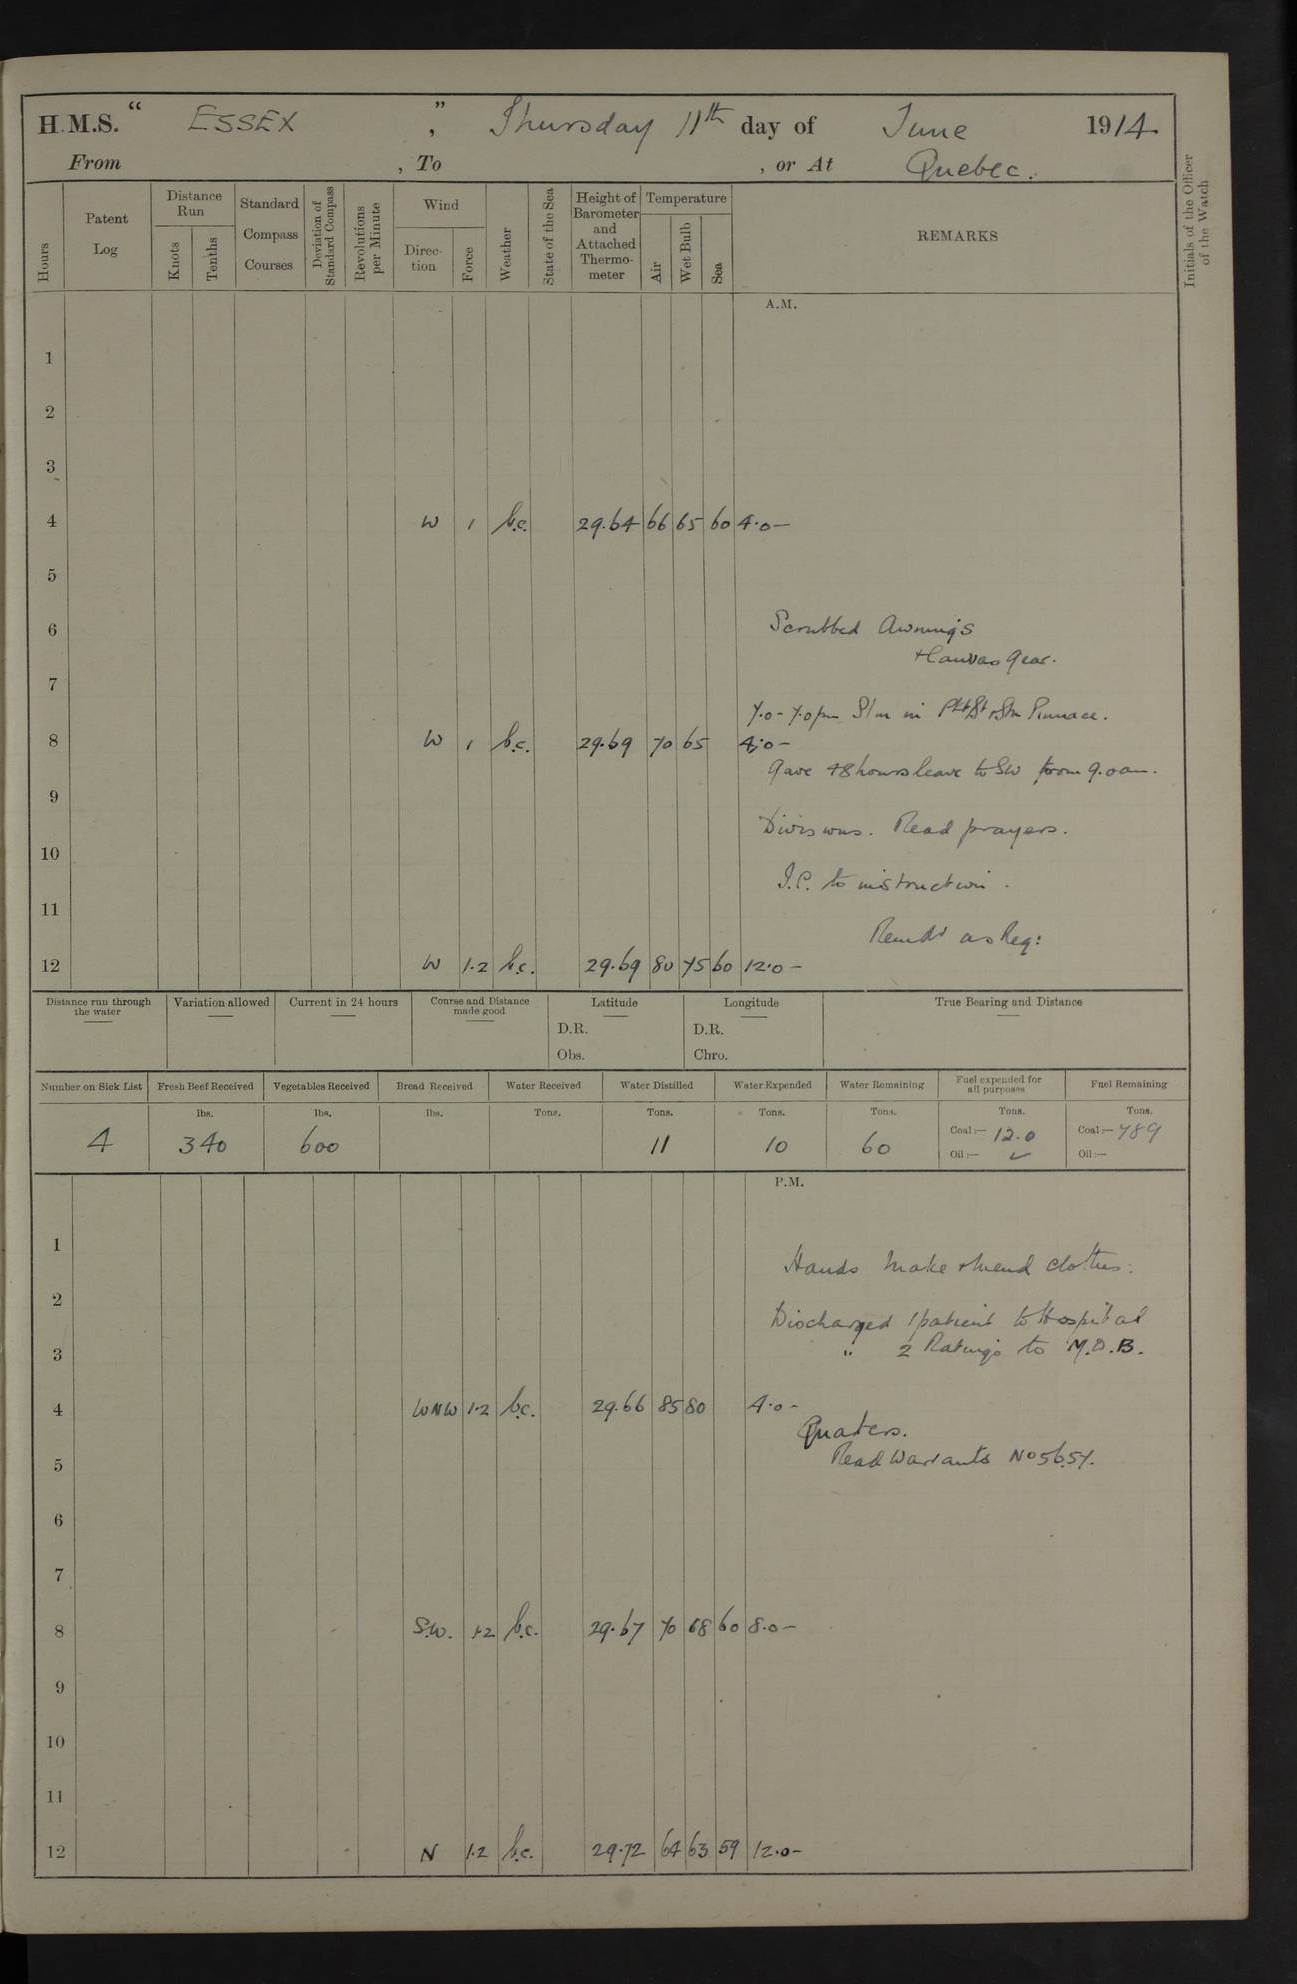 H.M.S. “ ESSEX ”, Thursday 11th day of June 1914.
From , To , or At Quebec.
Hours
Patent Log
Distance Run
Knots
Tenths
Standard Compass Courses
Deviation of Standard Compass
Revolutions per Minute
Wind
Direction
Force
Weather
State of the Sea
Height of Barometer and Attached Thermometer
Temperature
Air
Wet Bulb
Sea
REMARKS
Initials of the Officer of the Watch
A.M.
1
2
3
4 W 1 b.c. 29.64 66 65 60 4.0-
5
6 Scrubbed Awnings
+ Canvas Gear.
7
7.0 - 7.0pm in Pinnace.
8 W 1 b.c. 29.69 70 65 4.0-
Gave 48 hours leave to SW from 9.0am.
9
Divisions. Read prayers.
10
I.C. to instruction.
11
Remdr as Req:
12 W 1.2 b.c. 29.69 80 75 60 12.0-
Distance run through the water
Variation allowed
Current in 24 hours
Course and Distance made good
Latitude
D.R.
Obs.
Longitude
D.R.
Chro.
True Bearing and Distance
Number on Sick List
Fresh Beef Received
Vegetables Received
Bread Received
Water Received
Water Distilled
Water Expended
Water Remaining
Fuel expended for all purposes
Fuel Remaining
lbs. lbs. lbs. Tons. Tons. Tons. Tons. Tons. Tons.
4 340 600 11 10 60 Coal:— 12.0 Coal:— 789
Oil:— ✓ Oil:—
P.M.
1 Hands make & mend clothes.
2
Discharged 1 patient to Hospital
3 " 2 Ratings to M.D.B.
4 WNW 1.2 b.c. 29.66 85 80 4.0-
Quaters.
5 Read Warrants No 56.57.
6
7
8 S.W. 1.2 b.c. 29.67 70 68 60 8.0-
9
10
11
12 N 1.2 b.c. 29.72 64 63 59 12.0-